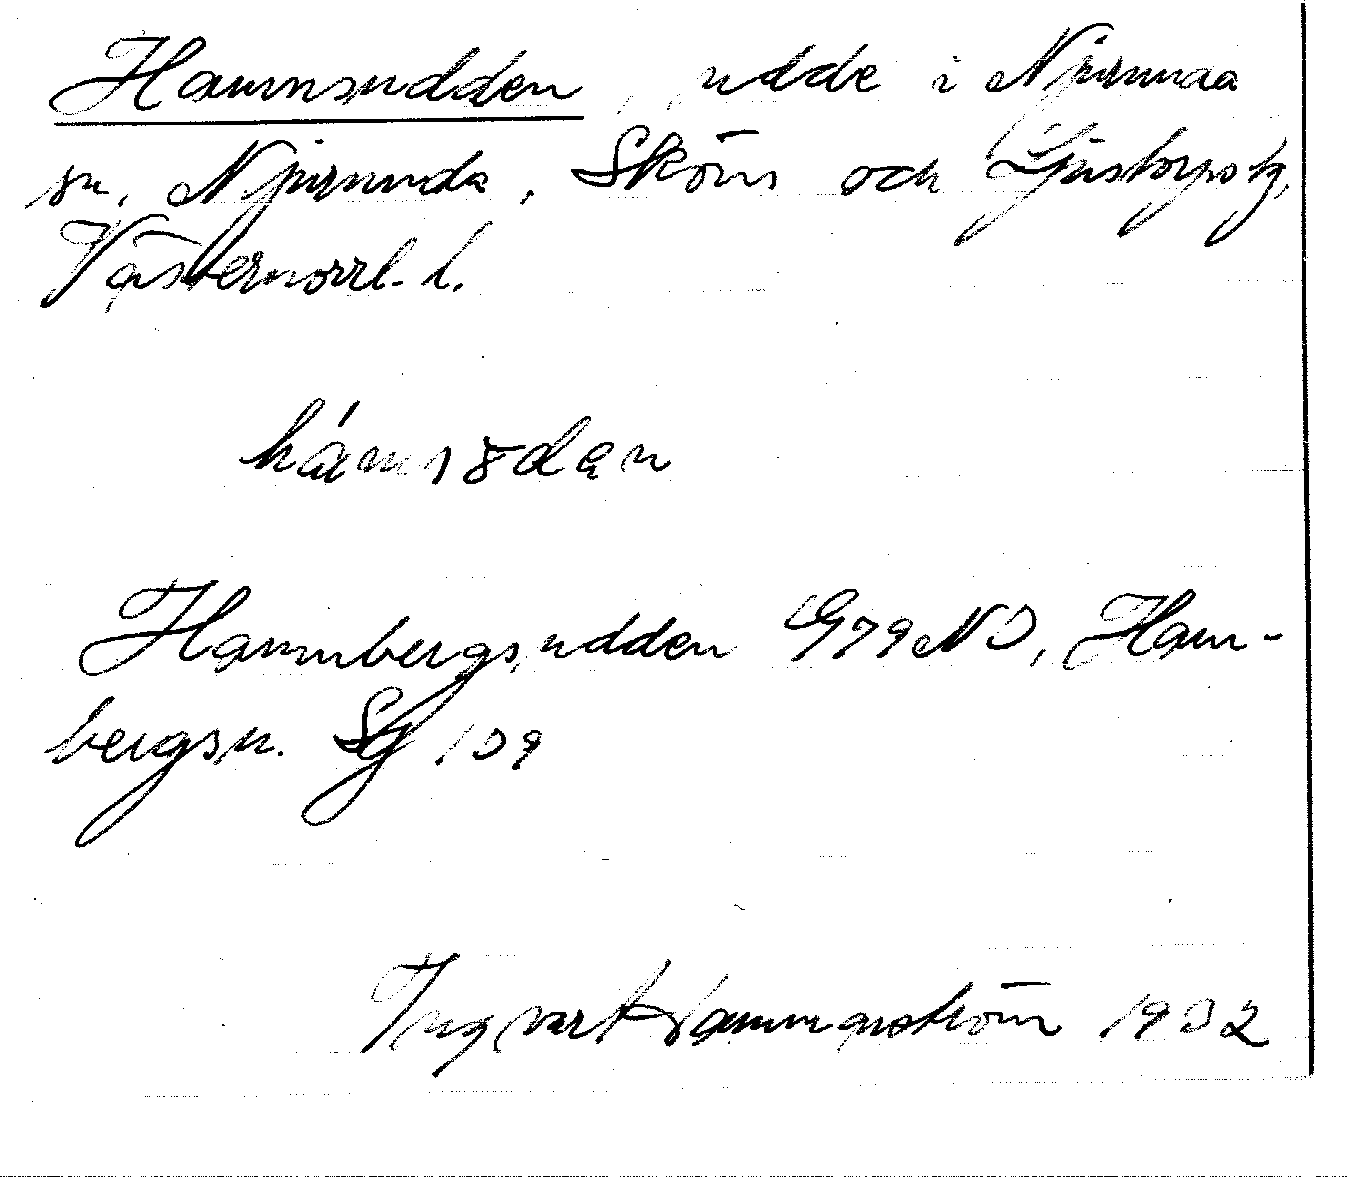 Hamnsudden, udde i Njurunda
sn, Njurunda, Sköns och Ljustorps tg,
Västernorrl. l.
hámsədan
Hamnbergsudden G79NO, Hamn-
bergsu. Sg 109
Ingvar Hammarström 1932